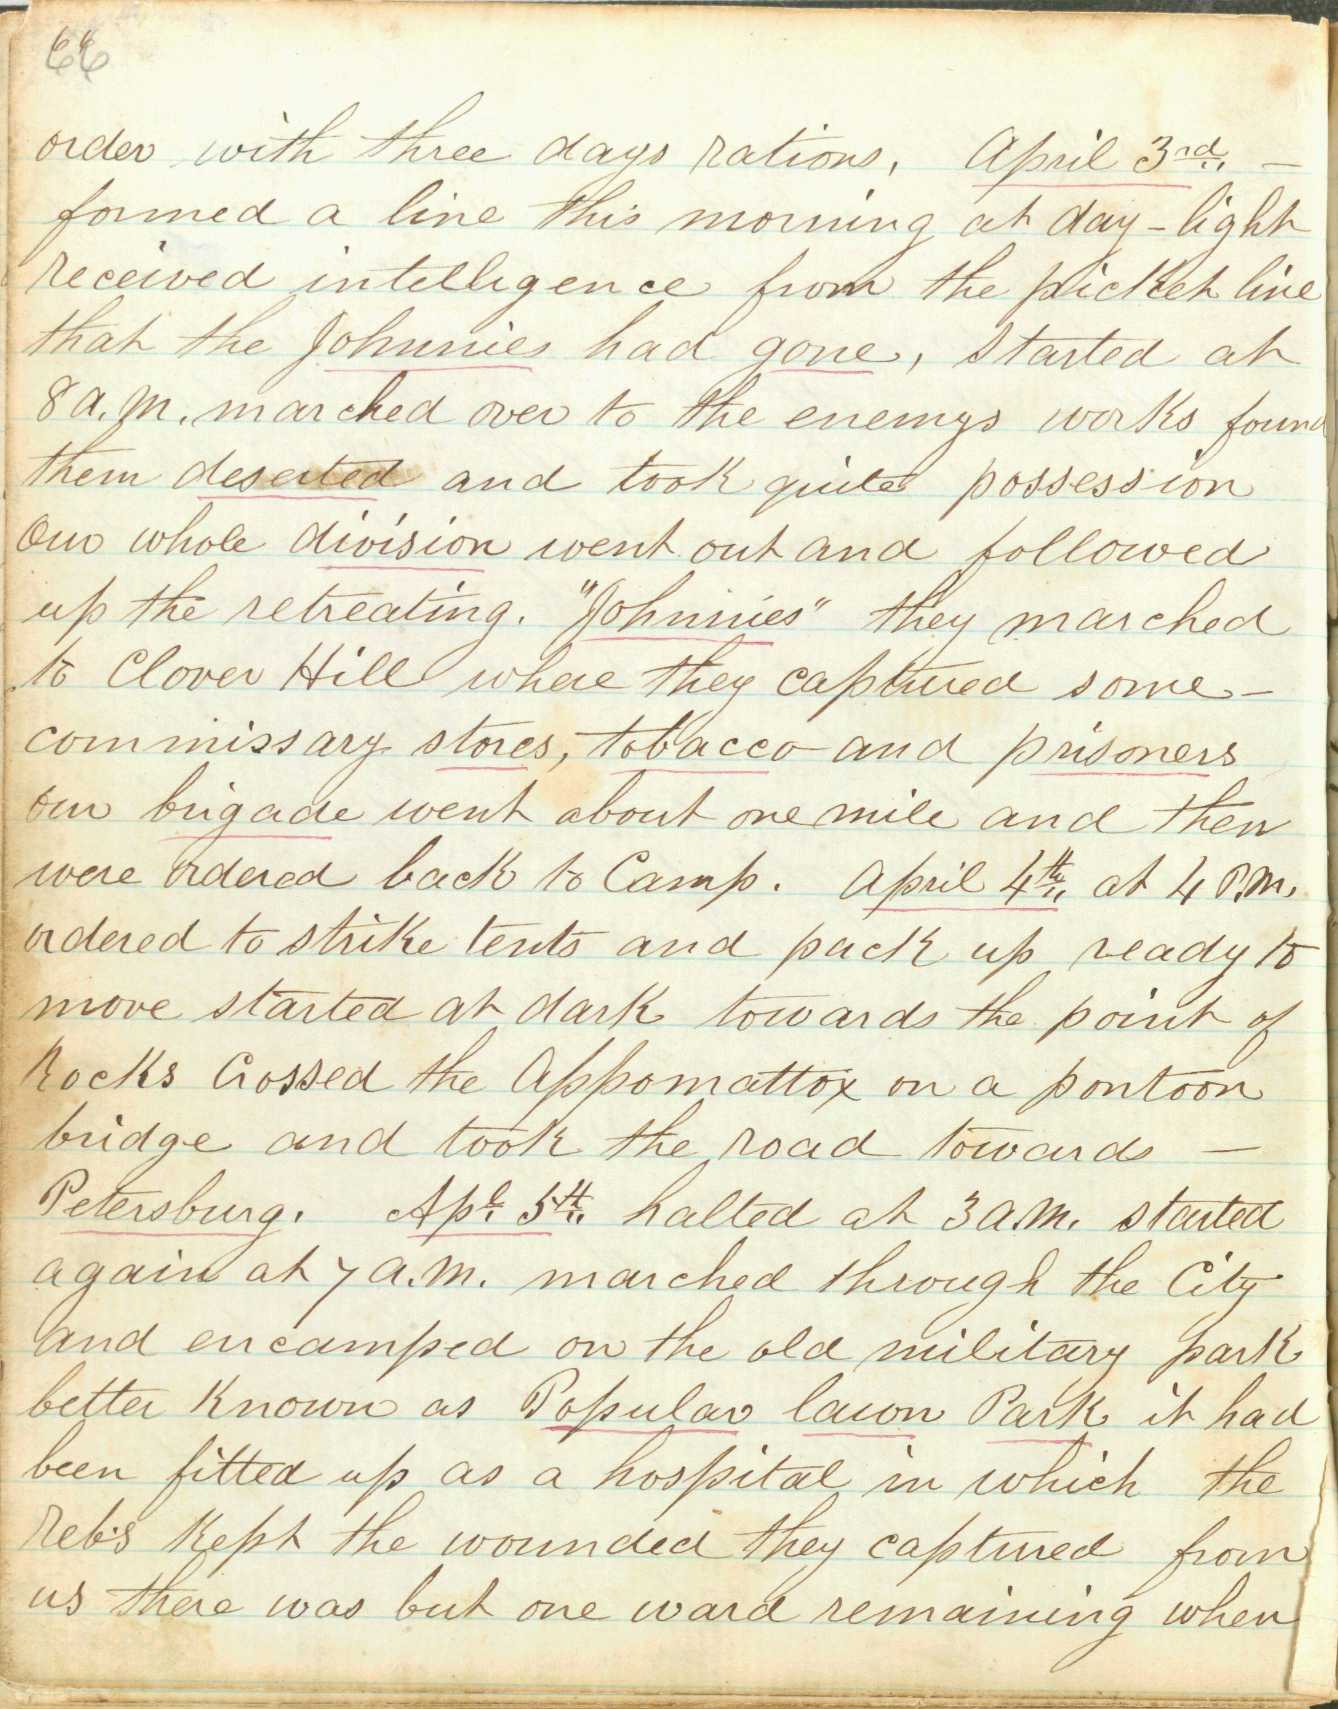 66
order with three days rations, April 3rd. —
formed a line this morning at day-light
received intelligence from the picket line
that the Johnnies had gone, started at
8 A.M. marched over to the enemys works found
them deserted and took quite possession
Our whole division went out and followed
up the retreating. "Johnnies" they marched
to Clover Hill where they captured some—
commissary stores, tobacco and prisoners
our brigade went about one mile and then
were ordered back to Camp. April 4th, at 4 P.M.
ordered to strike tents and pack up ready to
move started at dark towards the point of
Rocks Crossed the Appomattox on a pontoon
bridge and took the road towards —
Petersburg. Apl. 5th. halted at 3 A.M. started
again at 7 A.M. marched through the City
and encamped on the old military park
better known as Popular lawn Park it had
been fitted up as a hospital in which the
Reb's Kept the wounded they captured from
us there was but one ward remaining when